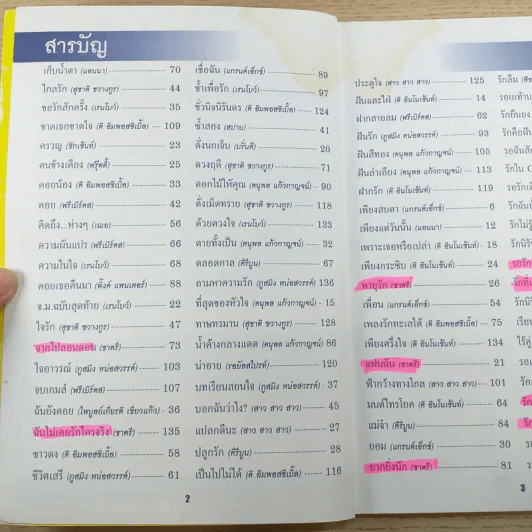 สารบัญ
เก็บน้ำตา (แอนนา) 70
ไกลรัก (สุชาติ ชวางกูร) 44
ขอรักสักครั้ง (เรนโบว์) 35
ขาดเธอขาดใจ (ดิ อิมพอสซิเบิ้ล) 109
ครวญ (ซิกเซ้นต์) 23
คนข้างเคียง (ฟรุ๊ตตี้) 25
คอยน้อง (ดิ อิมพอสซิเบิ้ล) 33
คอย (ฟรีเบิร์ดส) 42
คิดถึง...ห่างๆ (เฌอ) 56
ความฝันแปร (ฟรีเบิร์ดส) 66
ความในใจ (เรนโบว์) 68
คอยเธอคืนมา (พิ้งค์ แพนเตอร์) 88
จ.ม.ฉบับสุดท้าย (เรนโบว์) 22
ใจรัก (สุชาติ ชวางกูร) 47
จากไปลอนดอน (ชาตรี) 73
ใจอาวรณ์ (ภูสมิง หน่อสวรรค์) 103
จบเกมส์ (ฟรีเบิร์ดส) 107
ฉันยังคอย (ไพบูลย์เกียรติ เขียวแก้ว) 36
ฉันไม่เคยรักใครจริง (ชาตรี) 135
ชาวดง (ดิ อิมพอสซิเบิ้ล) 58
ชีวิตเสรี (ภูสมิง หน่อสวรรค์) 61
เชื่อฉัน (แกรนด์เอ็กซ์) 89
ช้ำเพื่อรัก (เรนโบว์) 97
ชั่วนิจนิรันดร (ดิ อิมพอสซิเบิ้ล) 124
ช้ำสอง (สปาย) 41
ดั่งนกเจ็บ (บรั่นดี) 20
ดวงฤดี (สุชาติ ชวางกูร) 71
ดอกไม้ให้คุณ (ดนุพล แก้วกาญจน์) 90
ดั่งเม็ดทราย (สุชาติ ชวางกูร) 118
ด้วยดวงใจ (เรนโบว์) 133
ตายทั้งเป็น (ดนุพล แก้วกาญจน์) 32
ตลอดกาล (คีรีบูน) 67
ถามหาความรัก (ภูสมิง หน่อสวรรค์) 136
ที่สุดของหัวใจ (ดนุพล แก้วกาญจน์) 15
ทาษทรมาน (สุชาติ ชวางกูร) 128
น้ำค้างกลางแดด (ดนุพล แก้วกาญจน์) 86
น่าอาย (รอยัลสไปรท์) 120
บทเรียนสอนใจ (ภูสมิง หน่อสวรรค์) 37
บอกฉันว่าไง? (สาว สาว สาว) 45
แปลกดีนะ (สาว สาว สาว) 27
ปลูกรัก (คีรีบูน) 28
เป็นไปไม่ได้ (ดิ อิมพอสซิเบิ้ล) 116
2
ประตูใจ (สาว สาว สาว) 125
ฝันและใฝ่ (ดิ อินโนเซ้นท์) 14
ฝากสายลม (ฟรีเบิร์ดส) 62
ฝันรัก (ภูสมิง หน่อสวรรค์) 93
ฝันสีทอง (ดนุพล แก้วกาญจน์) 105
ฝันลำเอียง (ดนุพล แก้วกาญจน์) 113
ฝากรัก (ดิ อินโนเซ้นท์) 119
เพียงสบตา (แกรนด์เอ็กซ์) 6
เพียงแต่วันนั้น (แอนนา) 12
เพราะเธอหรือเปล่า (ดิ อินโนเซ้นท์) 18
เพียงกระซิบ (ดิ อินโนเซ้นท์) 24
พายุรัก (ชาตรี) 26
เพื่อน (แกรนด์เอ็กซ์) 54
เพลงรักทะเลใต้ (ดิ อิมพอสซิเบิ้ล) 75
เพียงครึ่งใจ (ดิ อินโนเซ้นท์) 134
แฟนฉัน (ชาตรี) 21
ฟ้ากว้างทางไกล (สาว สาว สาว) 101
มนต์ไทรโยค (ดิ อินโนเซ้นท์) 64
แม่จ๋า (คีรีบูน) 84
ยอม (แกรนด์เอ็กซ์) 30
ยากยิ่งนัก (ชาตรี) 81
3